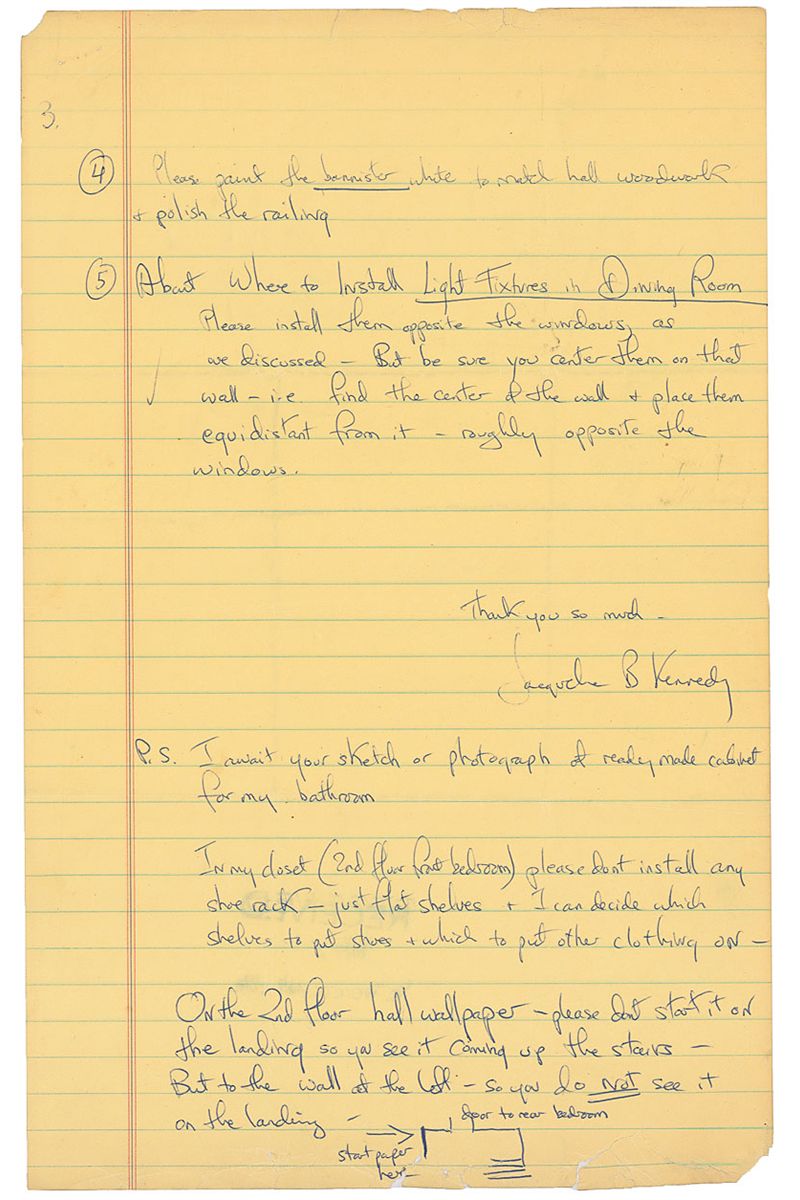 3.
4 Please paint the bannister white to match hall woodwork
+ polish the railing
5 About Where to Install Light Fixtures in Dining Room
Please install them opposite the windows, as
we discussed – But be sure you center them on that
wall – i.e. find the center of the wall + place them
equidistant from it – roughly opposite the
windows.
Thank you so much –
Jacqueline B Kennedy
P.S. I await your sketch or photograph of ready made cabinet
for my bathroom
In my closet (2nd floor front bedroom) please dont install any
shoe rack – just flat shelves + I can decide which
shelves to put shoes + which to put other clothing on –
On the 2nd floor hall wallpaper – please dont start it on
the landing so you see it coming up the stairs –
But to the wall at the left – so you do not see it
on the landing –
door to rear bedroom
start paper
here –